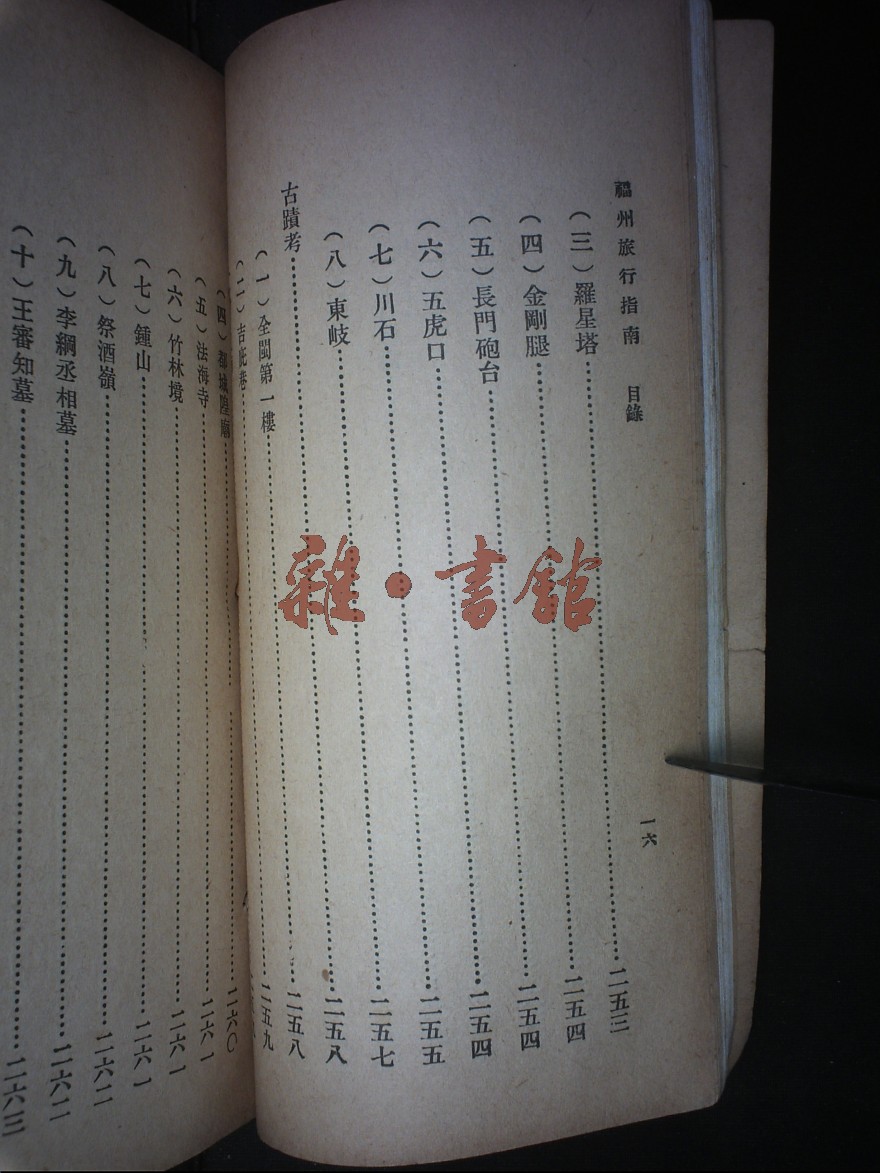 福州旅行指南 目錄 一六
(三)羅星塔……二五三
(四)金剛腿……二五四
(五)長門砲台……二五四
(六)五虎口……二五四
(七)川石……二五五
(八)東岐……二五七
古蹟考……二五八
(一)全閩第一樓……二五八
(二)吉庇巷……二五九
(四)都城隍廟……二六〇
(五)法海寺……二六一
(六)竹林境……二六一
(七)鍾山……二六一
(八)祭酒嶺……二六二
(九)李綱丞相墓……二六二
(十)王審知墓……二六三
雜·書館